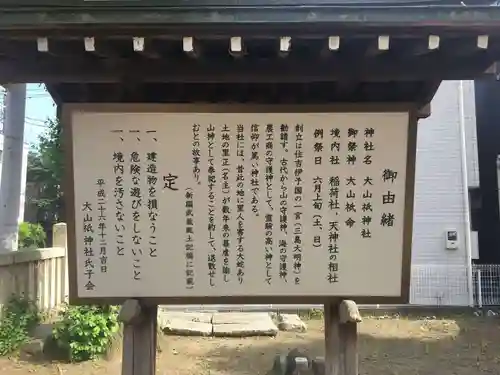 御由緒
神社名 大山祇神社
御祭神 大山祇命
境内社 稲荷社、天神社の相社
例祭日 六月上旬(土、日)
創立は往古伊予国の一宮(三島大明神)を
勧請す。古代から山の守護神、海の守護神、
農工商の守護神として、霊験の高い神として
信仰が篤い神社である。
当社には、昔此の地に里人を害する大蛇あり
土地の里正(名主)が数年来の暴虐を諭し
山神として奉祀することを約して、退散せし
おとの故事あり。
(新編武蔵風土記稿に記載)
定
一、建造物を損なうこと
一、危険な遊びをしないこと
一、境内を汚さないこと
平成二十六年十二月吉日
大山祇神社氏子会